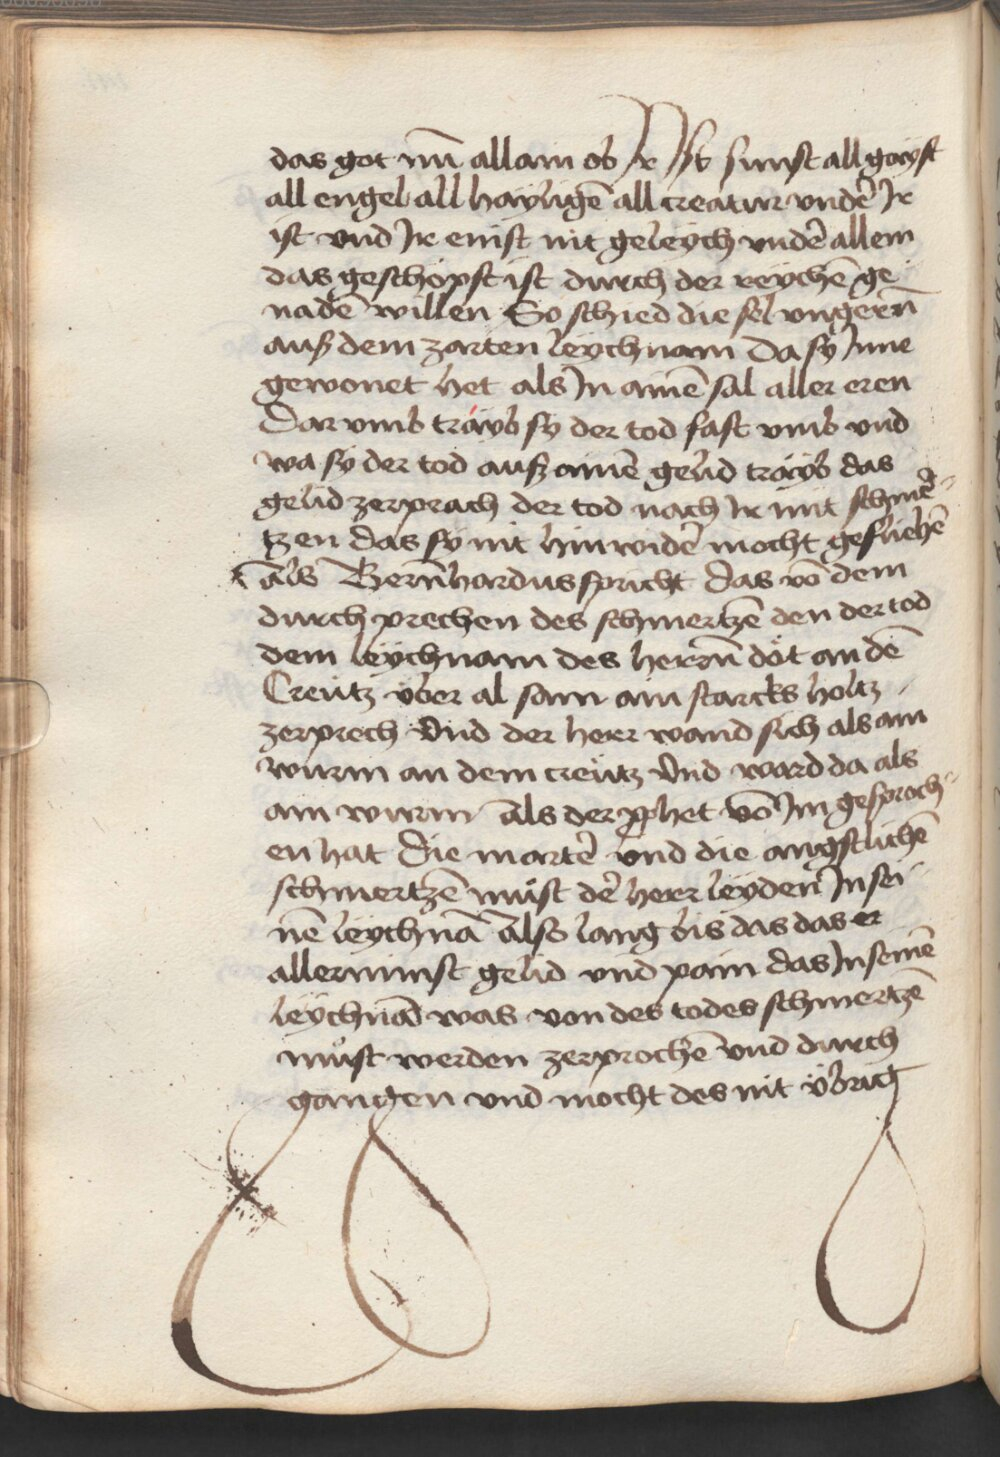 das got nŭ allain ob Ir Ist sunst all gayst
all engel all hayligē all creatur vndē Ir
ist vnd Ir enist nit geleych vndē allem
das geschöpft ist durch der reychē ge
nadē willen So schied die sel vngern̄
auß dem zarten leychnam Da sy Inne
gewonet het als In ainē sal aller eren
Dar vmb trayb sy der tod fast vmb vnd
wa sy der tod auß ainē gelid trayb das
gelid zerprach der tod nach Ir mit schmē
tzen das sy nit hin widē mocht gefliehē
als Bern̄hardus spricht Das vō dem
durch prechen des schmertzē den der tod
dem leychnam des herrn̄ döt an dē
Creütz über al sam ain starcks holtz
zerprech Vnd der herr wand sich als ain
wurm an dem creütz Vnd ward da als
ain wurm als der pphet vō Im gesproch
en hat Die martē vnd die angstlichē
schmertzē müst dē herr leyden In sei
nē leychnā Also lang bis das das er
allerminst gelid vnd pain das In seinē
leychnā was von des todes schmertzē
müst werden zerprochē vnd durch
gangen vnd mocht des nit übrig